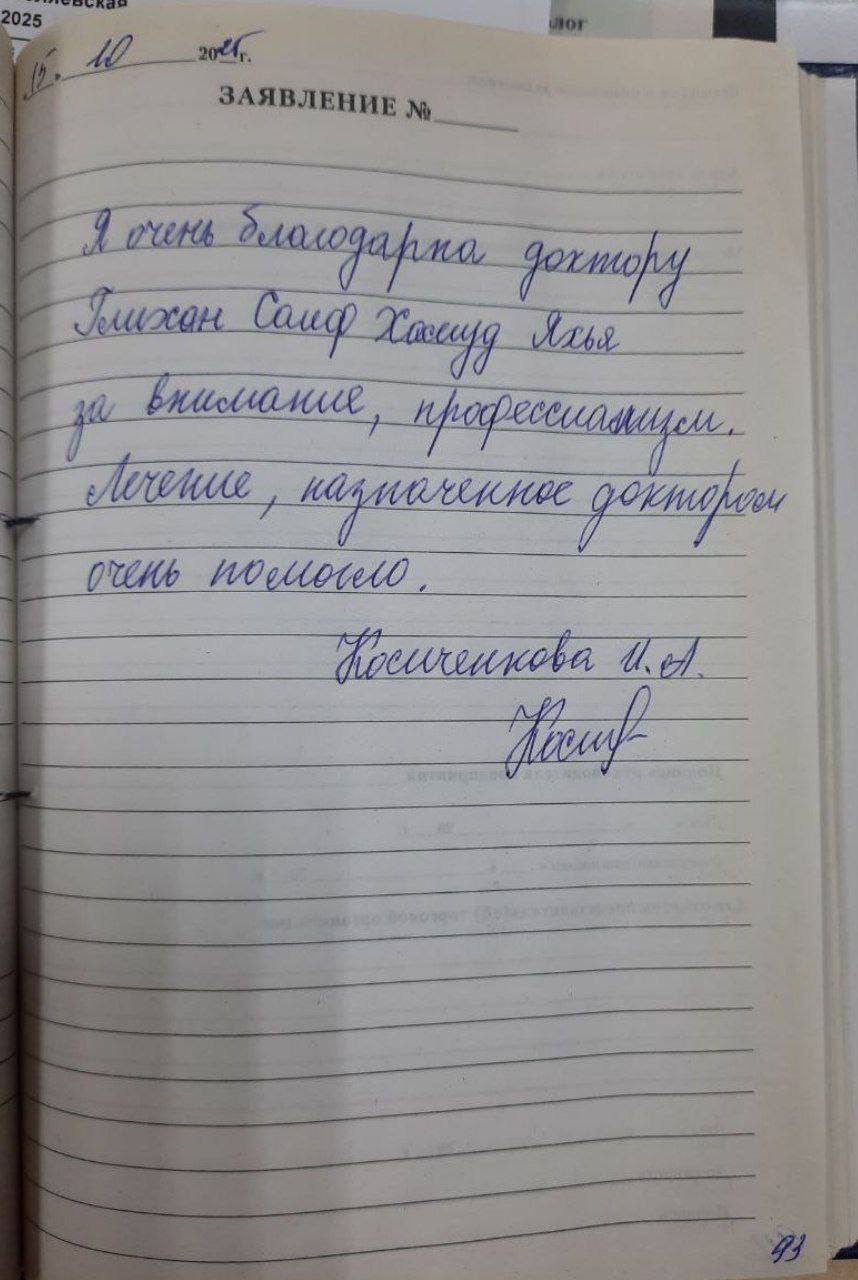 2025
15. 10 2025г.
ЗАЯВЛЕНИЕ №
Я очень благодарна доктору
Глихан Саиф Хамуд Яхья
за внимание, професионализм.
Лечение, назначенное доктором
очень помогло.
Косиченкова И.А.
93